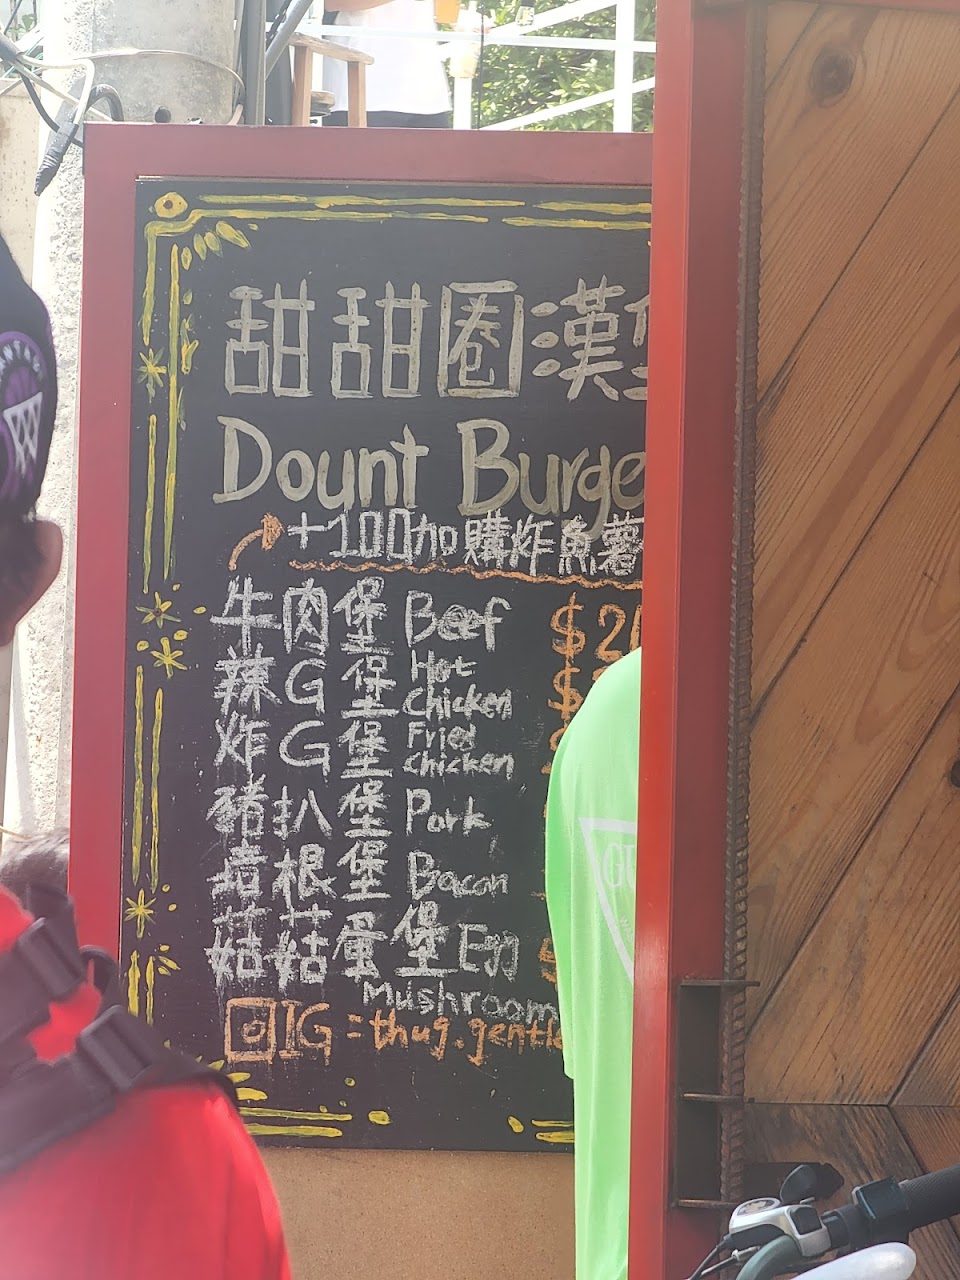 甜甜圈漢
Dount Burge
+100加購炸魚薯
牛肉堡 Beef $2
辣G堡 Hot Chicken $
炸G堡 Fried chicken
豬扒堡 Pork
培根堡 Bacon
菇菇蛋堡 Egg $
Mushroom
IG=thug.gentle